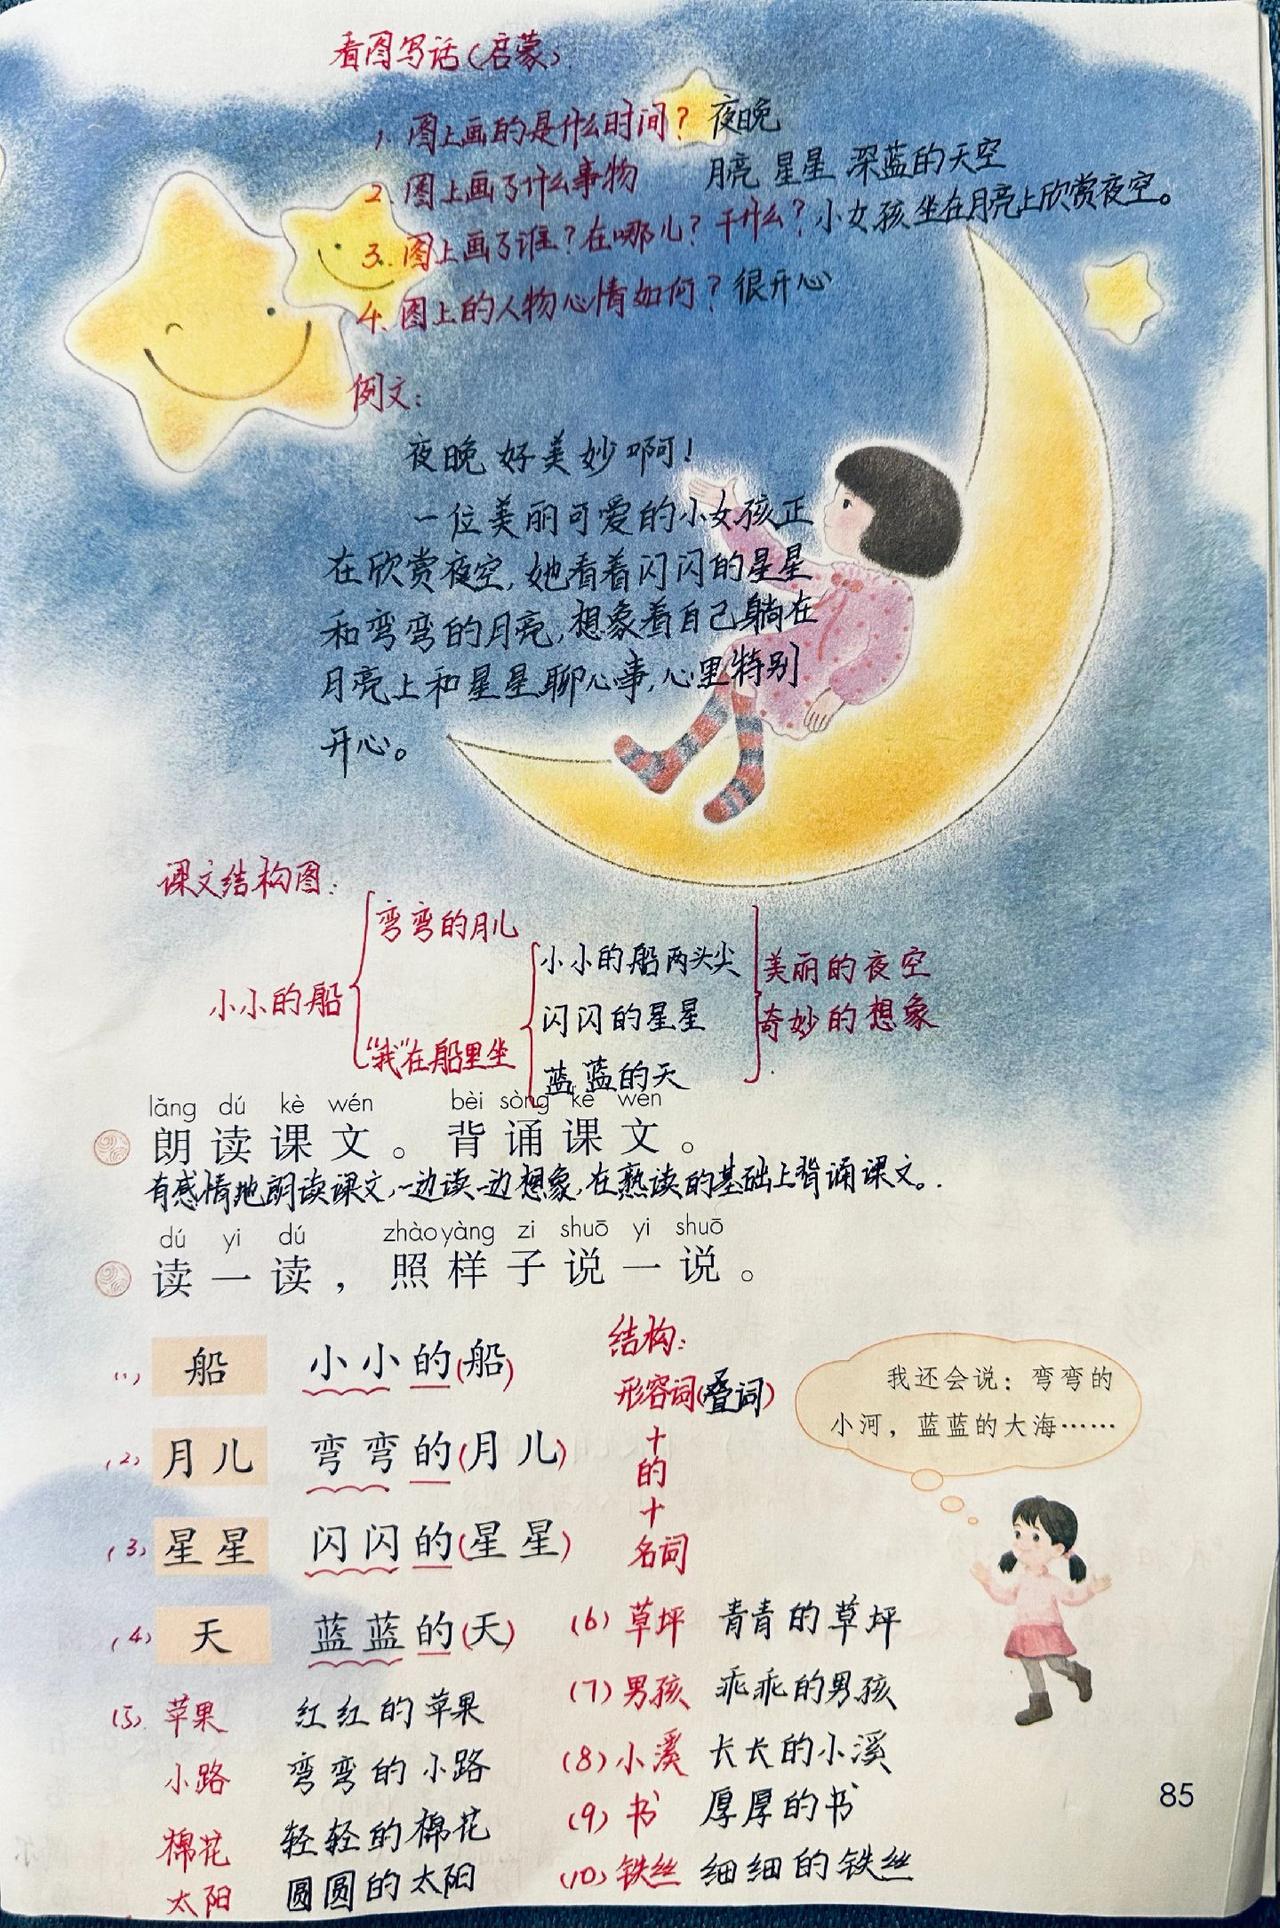 看图写话(启蒙)
1. 图上画的是什么时间？ 夜晚
2. 图上画了什么事物 月亮 星星 深蓝的天空
3. 图上画了谁？在哪儿？干什么？小女孩坐在月亮上欣赏夜空。
4. 图上的人物心情如何？很开心
例文：
夜晚好美妙啊！
一位美丽可爱的小女孩正
在欣赏夜空，她看着闪闪的星星
和弯弯的月亮，想象着自己躺在
月亮上和星星聊心事，心里特别
开心。
课文结构图：
弯弯的月儿
小小的船两头尖
美丽的夜空
小小的船
闪闪的星星
奇妙的想象
“我”在船里坐
蓝蓝的天
lǎng dú kè wén bèi sòng kè wén
朗读课文。背诵课文。
有感情地朗读课文，一边读一边想象，在熟读的基础上背诵课文。
dú yi dú zhào yàng zi shuō yi shuō
读一读，照样子说一说。
结构：
(1) 船 小小的(船)
形容词(叠词)
+
的
+
名词
(2) 月儿 弯弯的(月儿)
(3) 星星 闪闪的(星星)
(4) 天 蓝蓝的(天)
我还会说：弯弯的
小河，蓝蓝的大海……
(5) 苹果 红红的苹果
小路 弯弯的小路
棉花 轻轻的棉花
太阳 圆圆的太阳
(6) 草坪 青青的草坪
(7) 男孩 乖乖的男孩
(8) 小溪 长长的小溪
(9) 书 厚厚的书
(10) 铁丝 细细的铁丝
85